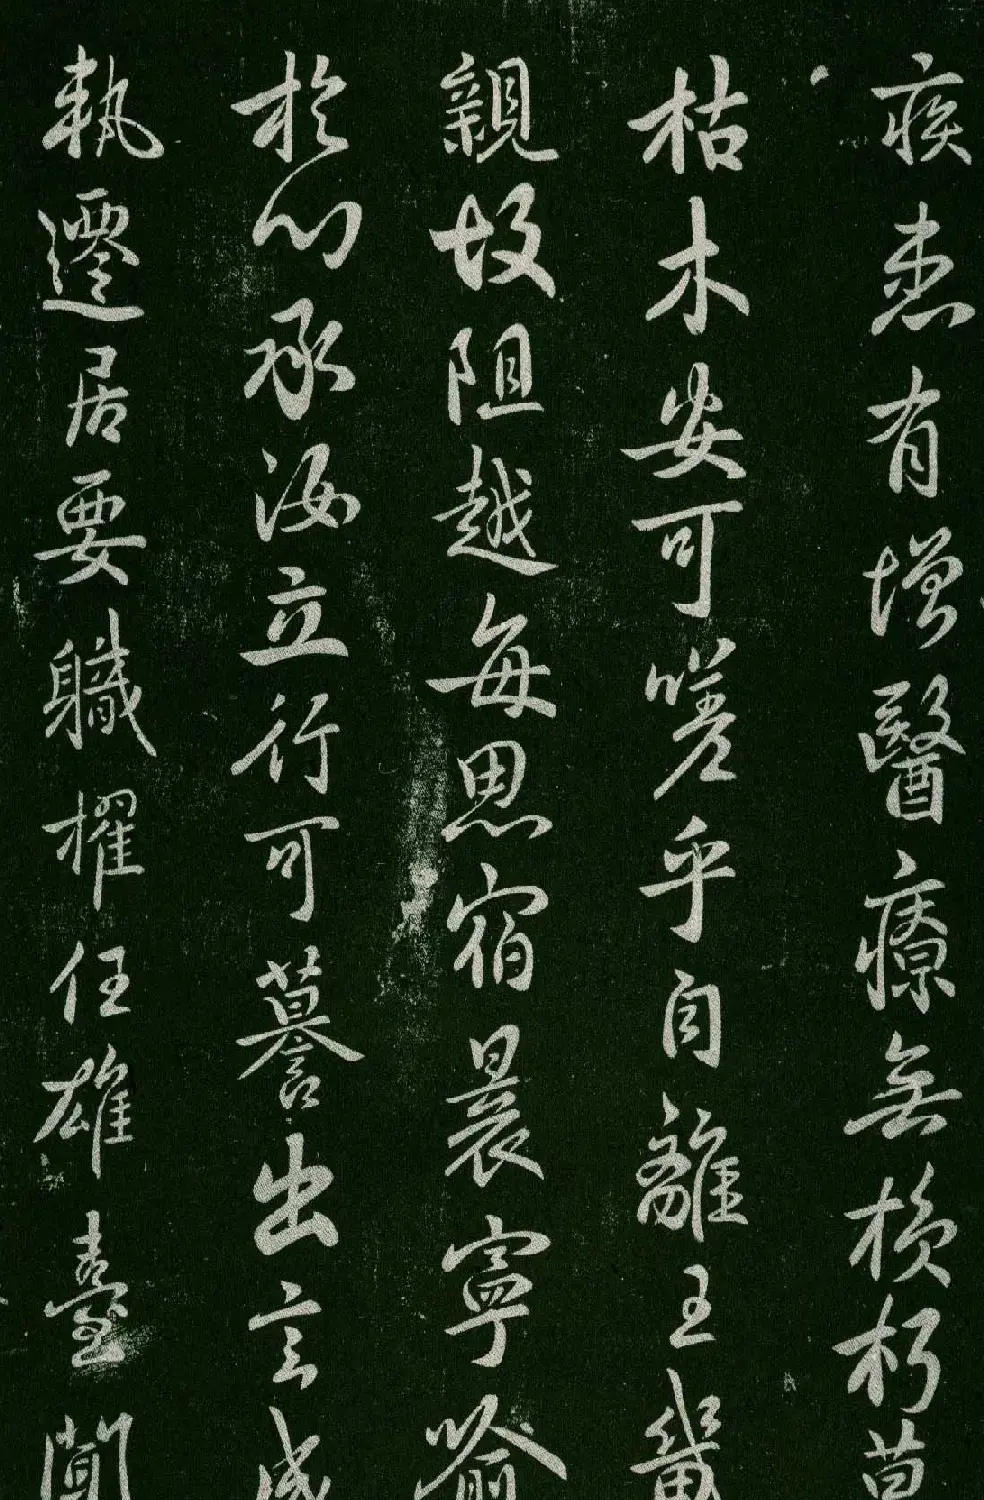 疾患有增醫療無損朽草
枯木安可嗟乎自離王畿
親故阻越每思宿晨寧喻
於心承汝立行可譽出言成
執遷居要職擢任雄臺聞